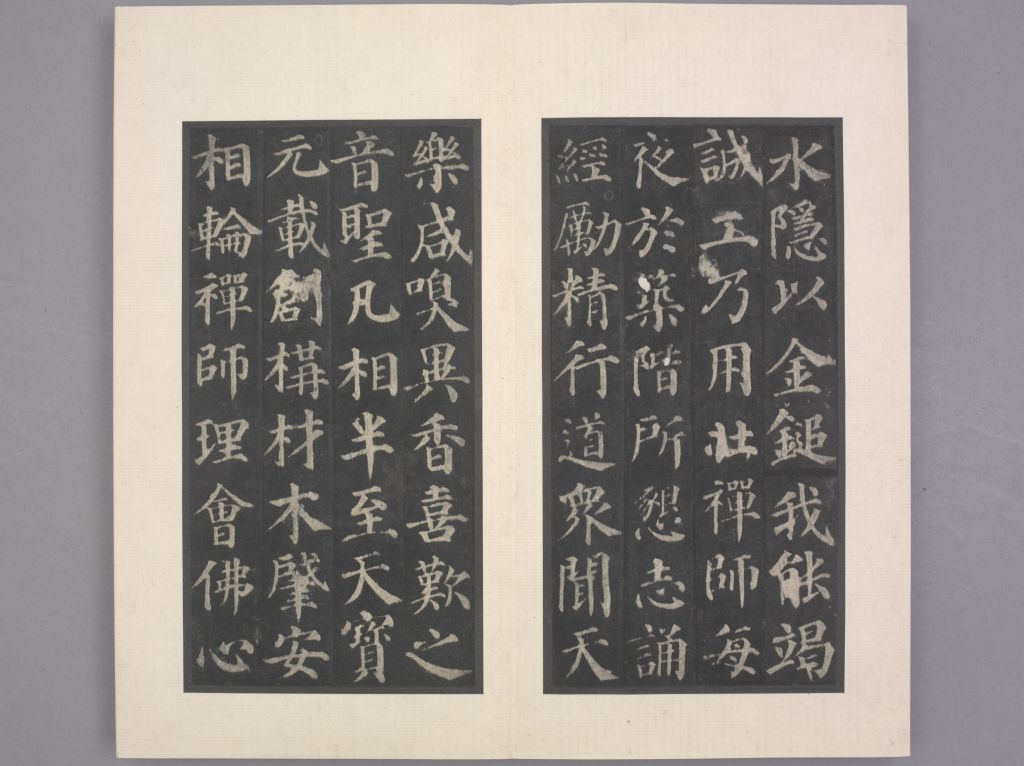 水隱以金鎚我能竭
誠工乃用壯禪師每
夜於築階所懇志誦
經勵精行道衆聞天
樂咸嗅異香喜歎之
音聖凡相半至天寶
元載創構材木肇安
相輪禪師理會佛心